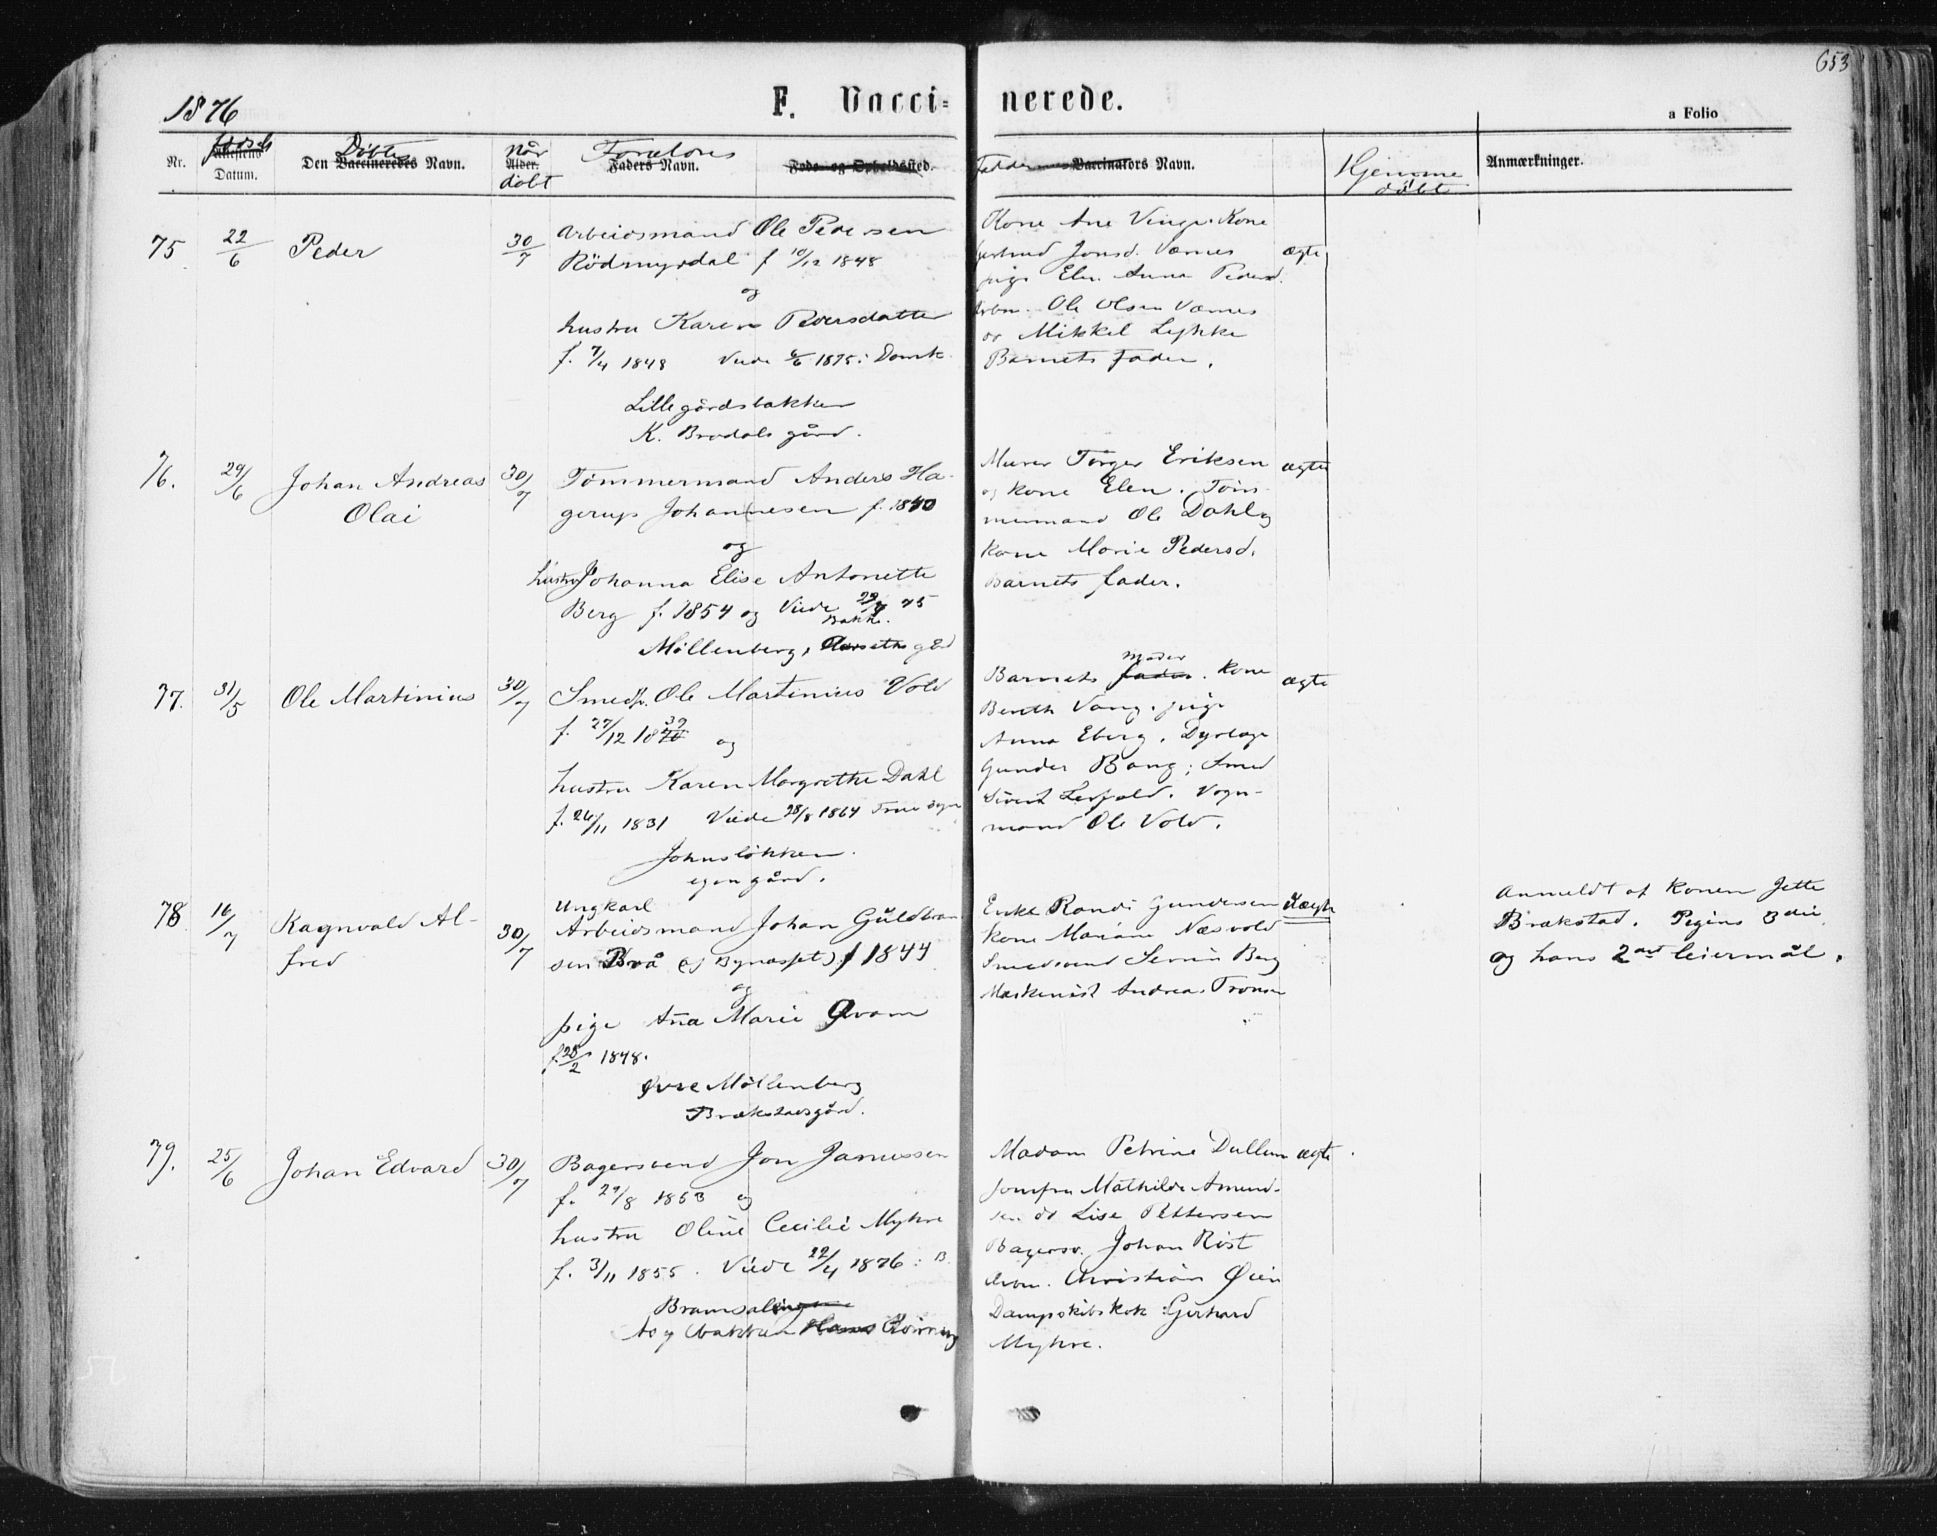 653
1876
F. Vacci- nerede.
a Folio
Nr.
Datum.
Den Vaccineredes Navn.
Døbtes
når
Alder.
døbt
Forældres
Faders Navn.
Føde- og Opholdssted.
Vaccinators Navn.
Hjemme
døbt
Anmærkninger.
75 22/6 Peder 30/7
Arbeidsmand Ole Pedersen
Rödmyrdal f 10/12 1848
og
hustru Karen
f. 7/4 1848 Viede 6/6 1875 i Domk.
Lillegårdsbakken
K. Brodals gård.
Kone Ane Vinge. Kone
Jonsd. Værnes ægte
pige Elen Anna Pedersd.
Arbm. Ole Olsen Værnes
og Mikkel Lykke
Barnets fader.
76. 29/6 Johan Andreas 30/7
Olai
Tömmermand Anders Ha-
gerups Johannesen f. 1850
og
hustru Johanna Elise Antonette
Berg f. 1854 og Viede 75
Bakk.
Möllenberg, gård
Murer Törger Eriksen ægte
og kone Elen. Töm-
mermand Ole Dahl og
kone Marie Pedersd.
Barnets fader.
77. 31/5 Ole Martinius 30/7
Smedsv. Ole Martinius Vold
f. 27/12 1839
og
hustru Karen Margrethe Dahl
f. 26/11 1831 Viede 28/8 1864 Frue sogn
Johnsløkken
egen gård.
Moder
Barnets fader. Kone ægte
Bereth Vang. pige
Anna Eberg. Dyrlæge
Gunder Bang; Smed
Sivert Leufald. Vogn-
mand Ole Vold.
78. 16/7 Ragnvald Al- 30/7
fred
Ungkarl
Arbeidsmand Johan Guldbran
sen Brå (af Bynæsset) f 1844
og
pige Aña Marie Qvam
f. 28/2 1848.
Øvre Möllenberg
Brækstadsgård.
Enke Randi Gundersen Uægte
kone Mariane Næsvold
Smedsvend Severin Berg
Maskinist Andreas Tronsen
Anmeldt af konen Jette
Brækstad. Pigens 3die
og hans 2det leiermål.
79. 25/6 Johan Edvard 30/7
Bagersvend Jon Janussen
f. 29/8 1853 og
hustru Oline Cecilie Myhre
f. 3/11 1855. Viede 22/4 1876 i B.
Madam Petrine Dullum ægte
Jomfru Mathilde Amund-
sen do Lise Pettersen
Bagersv. Johan Rist
Arbm. Christian Øien
Dampskibskok Gerhard
Myhre.